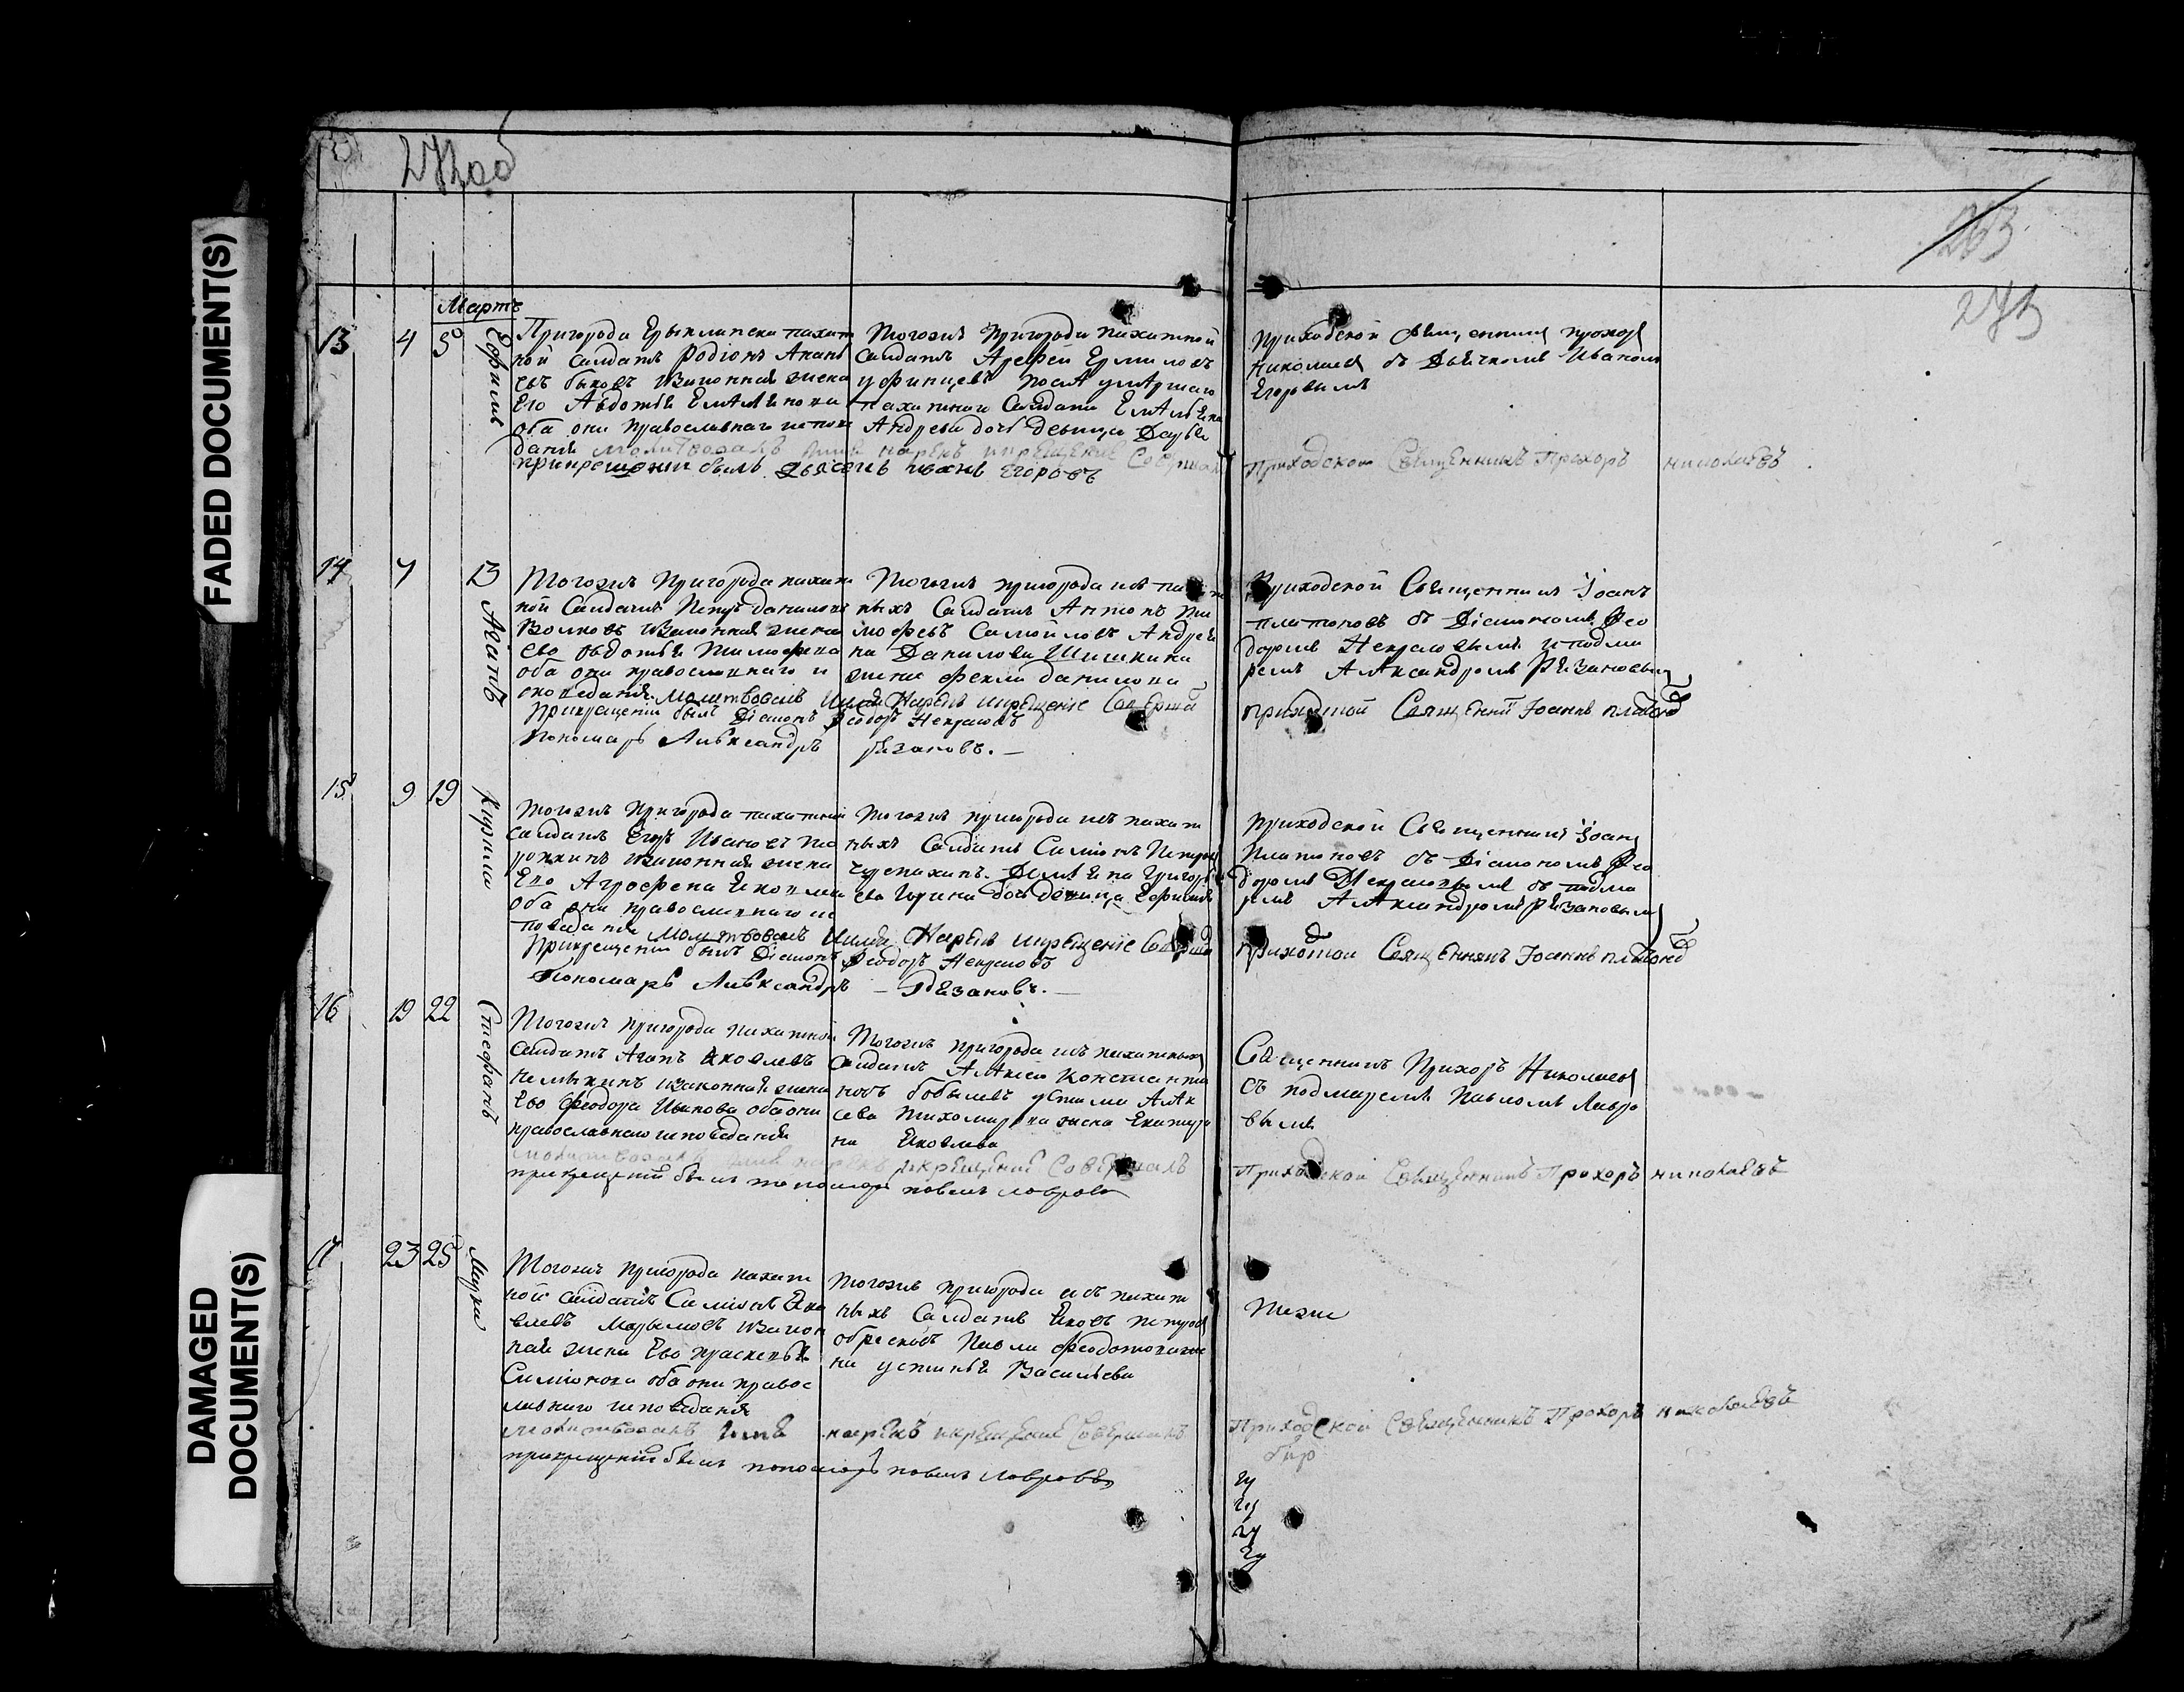 FADED DOCUMENT(S)
DAMAGED
DOCUMENT(S)
272об
263
273
Мартъ
13 4 5
Ефимъ
Пригорода Ерыклинска пахат
ной Салдатъ Родіонъ Анань
евъ Быковъ изаконная жена
Его Авдотья Емельянова
оба они православнаго испове
данія
молитвовалъ имя нарекъ икрещение Совершалъ
прикрещении былъ дьячекъ иванъ Егоровъ
Тогожъ Пригорода пахатной
Салдатъ Арефей Ермиловъ
умершаго
пахатного Салдата Емельяна
Андреева дочь девица Дарья
Приходской Священникъ Прохоръ
Николаевъ съ Дьячкомъ Иваномъ
Егоровымъ
Приходской Священникъ Прохоръ николаевъ
14 7 13
Агапъ
Тогожъ Пригорода пахат
ной Салдатъ Петръ Даниловъ
Волковъ изаконная жена
ево Овдотья Тимофеева
оба они православнаго и
споведания
молитвовалъ Имя Нарекъ икрещение Соверша
Прикрещении былъ Діаконъ Феодоръ Некрасовъ
Пономарь Александръ Резановъ.—
Тогожъ пригорода изъ пахат
ныхъ Салдатъ Антонъ Ти
мофеевъ Самойловъ Андрея
на Данилова Шишкина
жена Фекла Данилова
Приходской Священникъ Іоанъ
Платоновъ съ Діакономъ Фео
доромъ Некрасовымъ ипонома
ремъ Александромъ Резановымъ
приходской Священникъ Іоаннъ платоновъ
15 9 19
Кирилла
Тогожъ Пригорода пахатной
салдатъ Егоръ Ивановъ
изаконная жена
Его Агрофена
оба они православнаго ис
поведания
Молитвовалъ Имя Нарекъ икрещение Соверша
Прикрещении былъ Діаконъ Феодоръ Некрасовъ
Пономарь Александръ — Резановъ.—
Тогожъ пригорода изъ пахат
ныхъ Салдатъ Симіонъ Петровъ
Черепахинъ. Григорь
ева дочь девица
Приходской Священникъ Іоанъ
Платоновъ съ Діакономъ Фео
доромъ Некрасовымъ съ понома
ремъ Александромъ Резановымъ
приходской Священникъ Іоаннъ платоновъ
16 19 22
Стефанъ
Тогожъ пригорода пахатной
салдатъ Агапъ Яковлевъ
изаконная жена
Ево Феодора Иванова оба они
православнаго исповедания
молитвовалъ имя нарекъ икрещение Совершалъ
прикрещении былъ пономарь павелъ лавровъ
Тогожъ пригорода изъ пахатныхъ
Салдатъ Алексей Константи
новъ Бобылевъ Алек
сева Тихомирова жена Екатери
на Яковлева
Священникъ Прохоръ Николаевъ
съ пономаремъ Павломъ Лавро
вымъ
Приходской Священникъ Прохоръ николаевъ
17 23 25
Марья
Тогожъ Пригорода пахат
ной салдатъ Симіонъ Яко
влевъ изакон
ная жена Ево Прасковья
Симіонова оба они правос
лавнаго исповедания
молитвовалъ имя нарекъ икрещение Совершалъ
прикрещении былъ пономарь павелъ лавровъ
Тогожъ пригорода изъ пахат
ныхъ Салдатъ Яковъ Петровъ
Обрезковъ Павла Федотова же
на устинья Васильева
Тежъ
Приходской Священникъ Прохоръ николаевъ